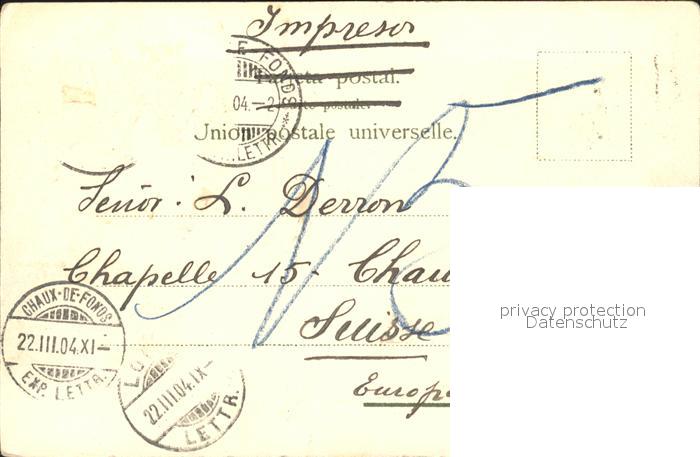 Impresor
Tarjeta postal.
Carte postale.
Union postale universelle.
E-FONDS
04.–2
LETTR.
Señor: L. Derron
Chapelle 15- Chau
Suisse
Europ
privacy protection
Datenschutz
CHAUX-DE-FONDS
22.III.04.XI–
EXP. LETTR.
22.III.04.IX–
LETTR.